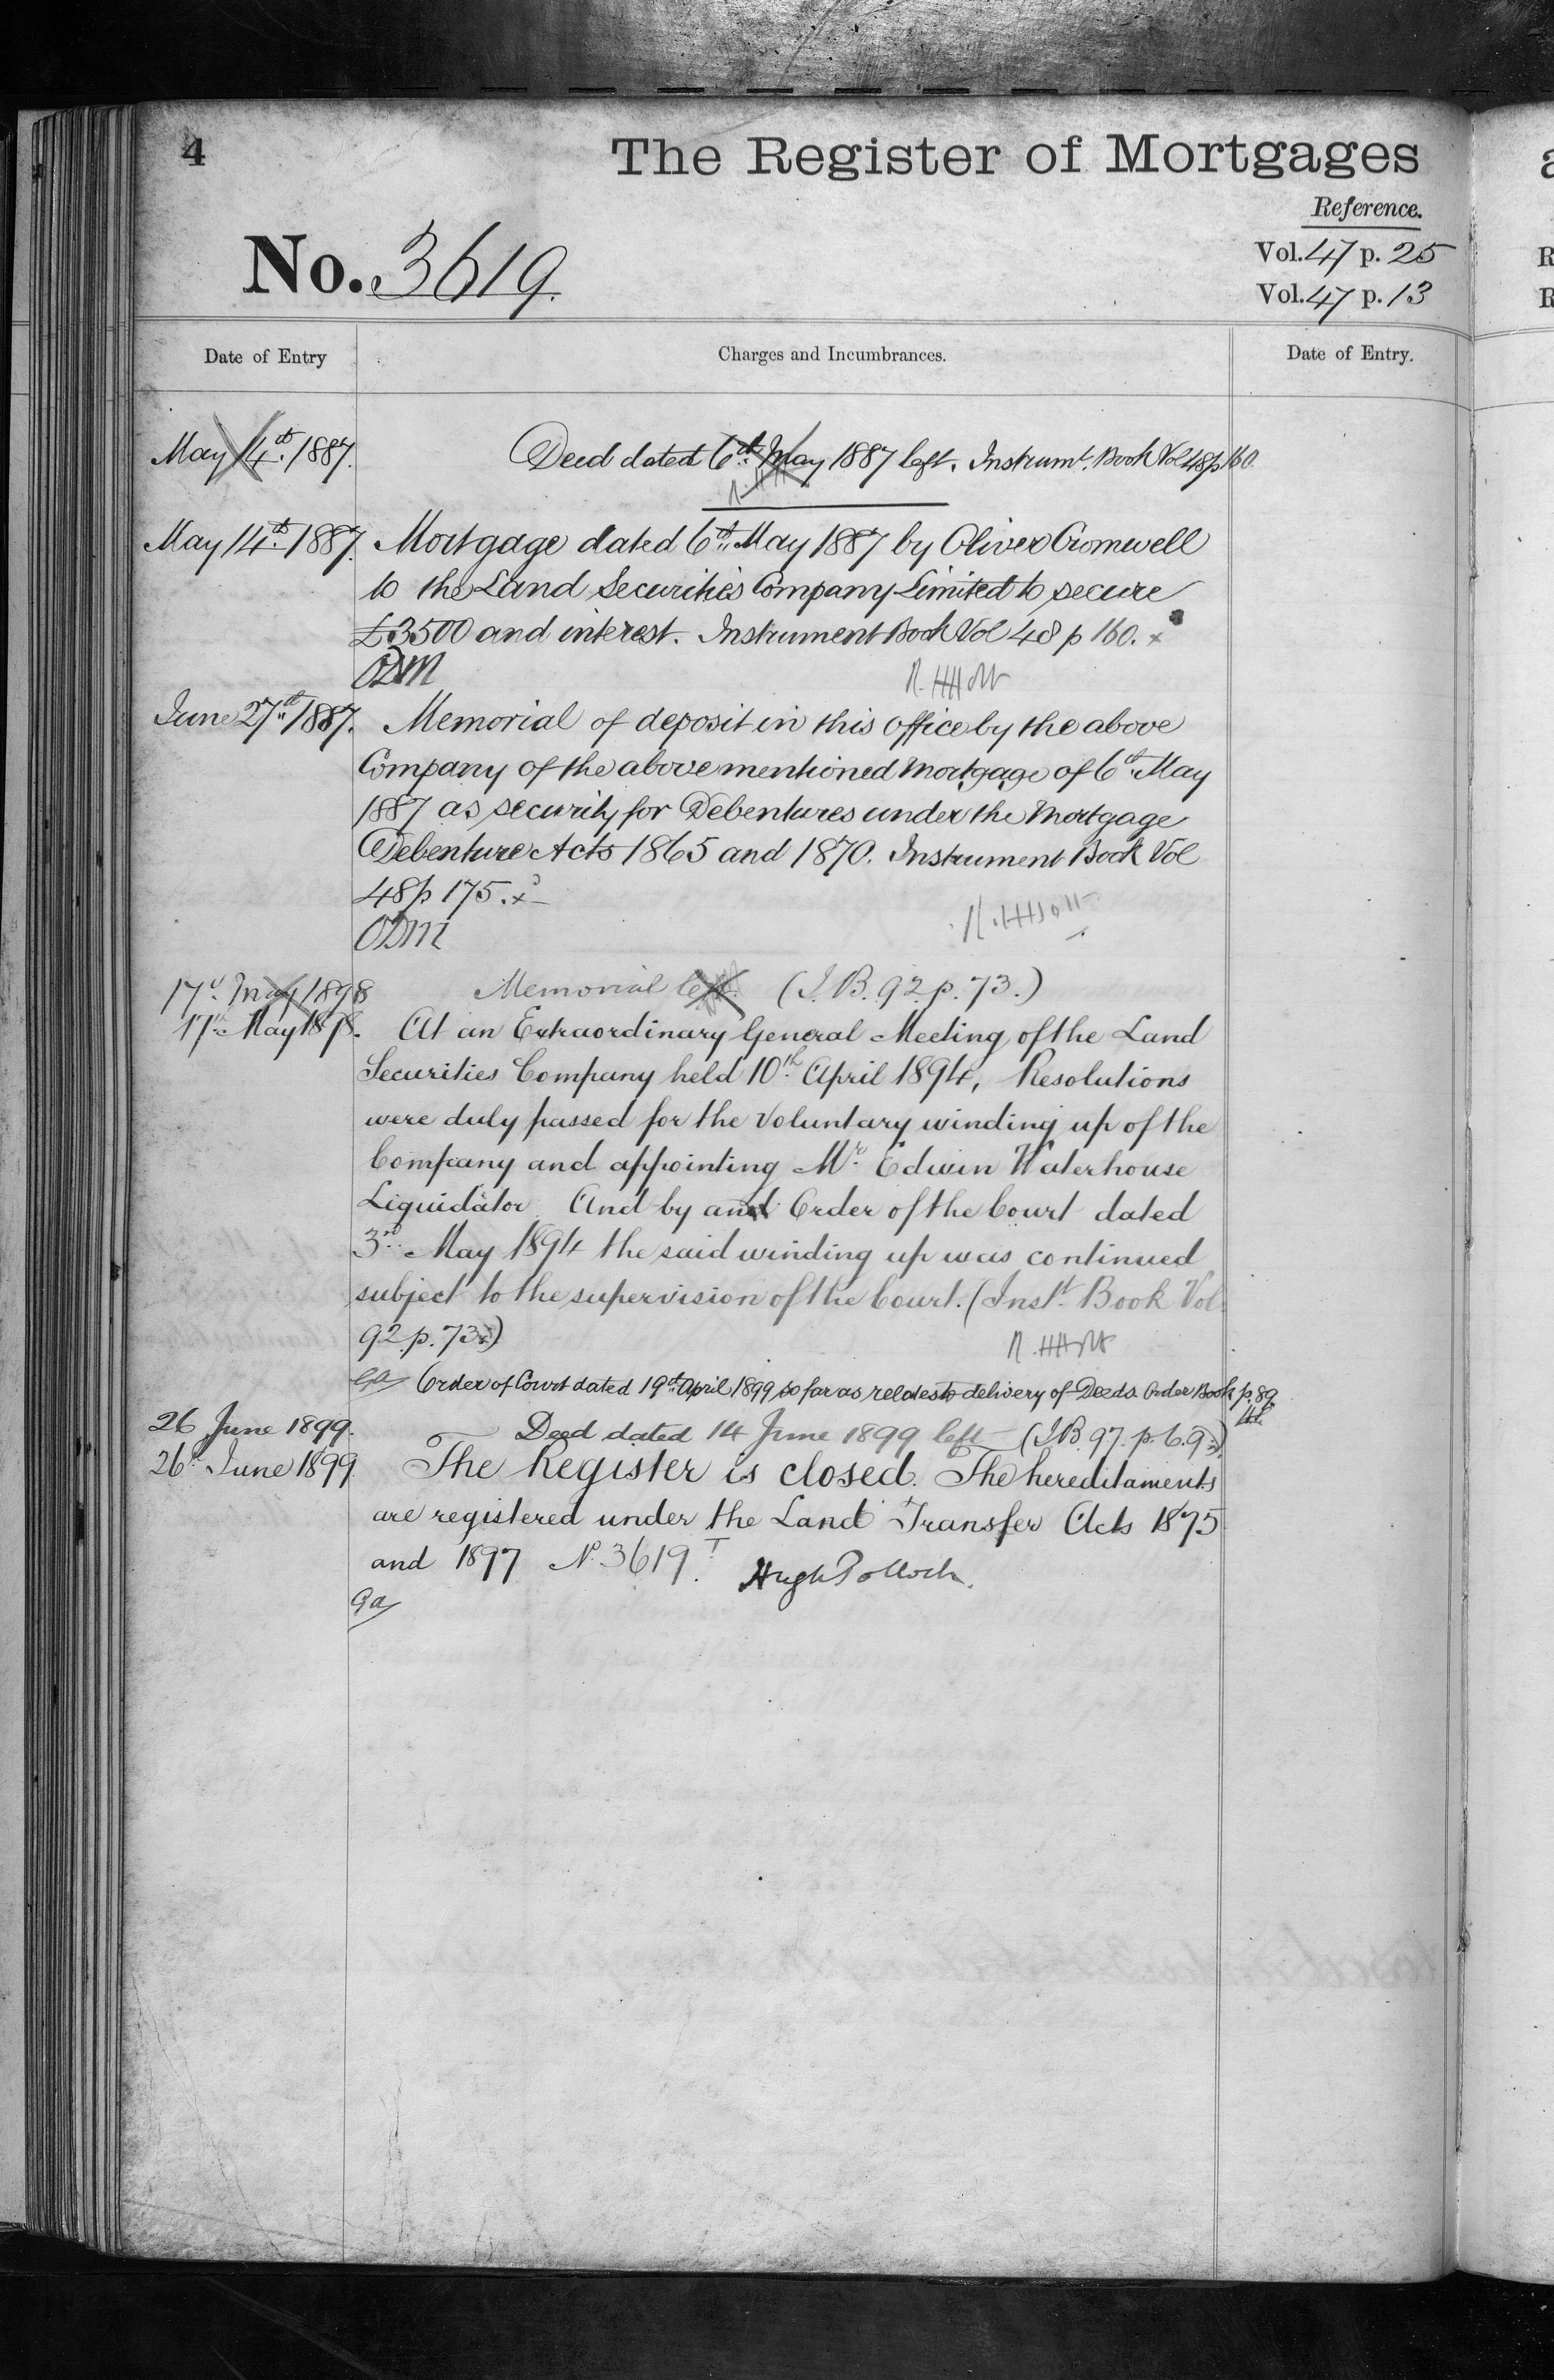 4
The Register of Mortgages
Reference.
No. 3619.
Vol. 47 p. 25
Vol. 47 p. 13
Date of Entry
Charges and Incumbrances.
Date of Entry.
May 14th. 1887. Deed dated 6th. May 1887 left. Instrumt. Book Vol 48 p 160.
May 14th. 1887. Mortgage dated 6th. May 1887 by Oliver Cromwell
to the Land Securities Company Limited to secure
£3500 and interest. Instrument Book Vol 48 p 160. x
ODM
June 27th 1887. Memorial of deposit in this office by the above
Company of the above mentioned Mortgage of 6th May
1887 as security for Debentures under the Mortgage
Debenture Acts 1865 and 1870. Instrument Book Vol
48 p 175. x
ODM
17th. May 1898 Memorial left (I.B. 92. p. 73.)
17th. May 1898. At an Extraordinary General Meeting of the Land
Securities Company held 10th. April 1894, Resolutions
were duly passed for the Voluntary winding up of the
Company and appointing Mr. Edwin Waterhouse
Liquidator And by and Order of the Court dated
3rd. May 1894 the said winding up was continued
subject to the supervision of the Court. (Inst. Book Vol.
92. p. 73.)
Order of Court dated 19th April 1899 so far as relates to delivery of Deeds. Order Book p. 89.
26 June 1899. Deed dated 14 June 1899 left (I.B. 97. p. 69.)
26 June 1899. The Register is closed. The hereditaments
are registered under the Land Transfer Acts 1875
and 1897 No. 3619 T. Hugh Pollock.